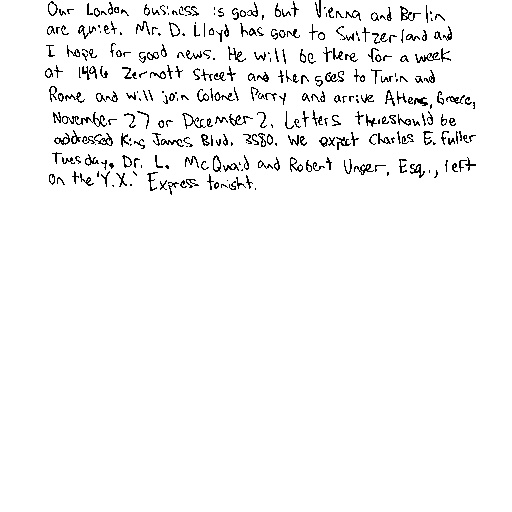 Our London business is good, but Vienna and Berlin
are quiet. Mr. D. Lloyd has gone to Switzerland and
I hope for good news. He will be there for a week
at 1496 Zermott Street and then goes to Turin and
Rome and will join Colonel Parry and arrive Athens, Greece,
November 27 or December 2. Letters there should be
addressed King James Blvd. 3580. We expect Charles E. Fuller
Tuesday. Dr. L. McQuaid and Robert Unger, Esq., left
on the 'Y.X.' Express tonight.